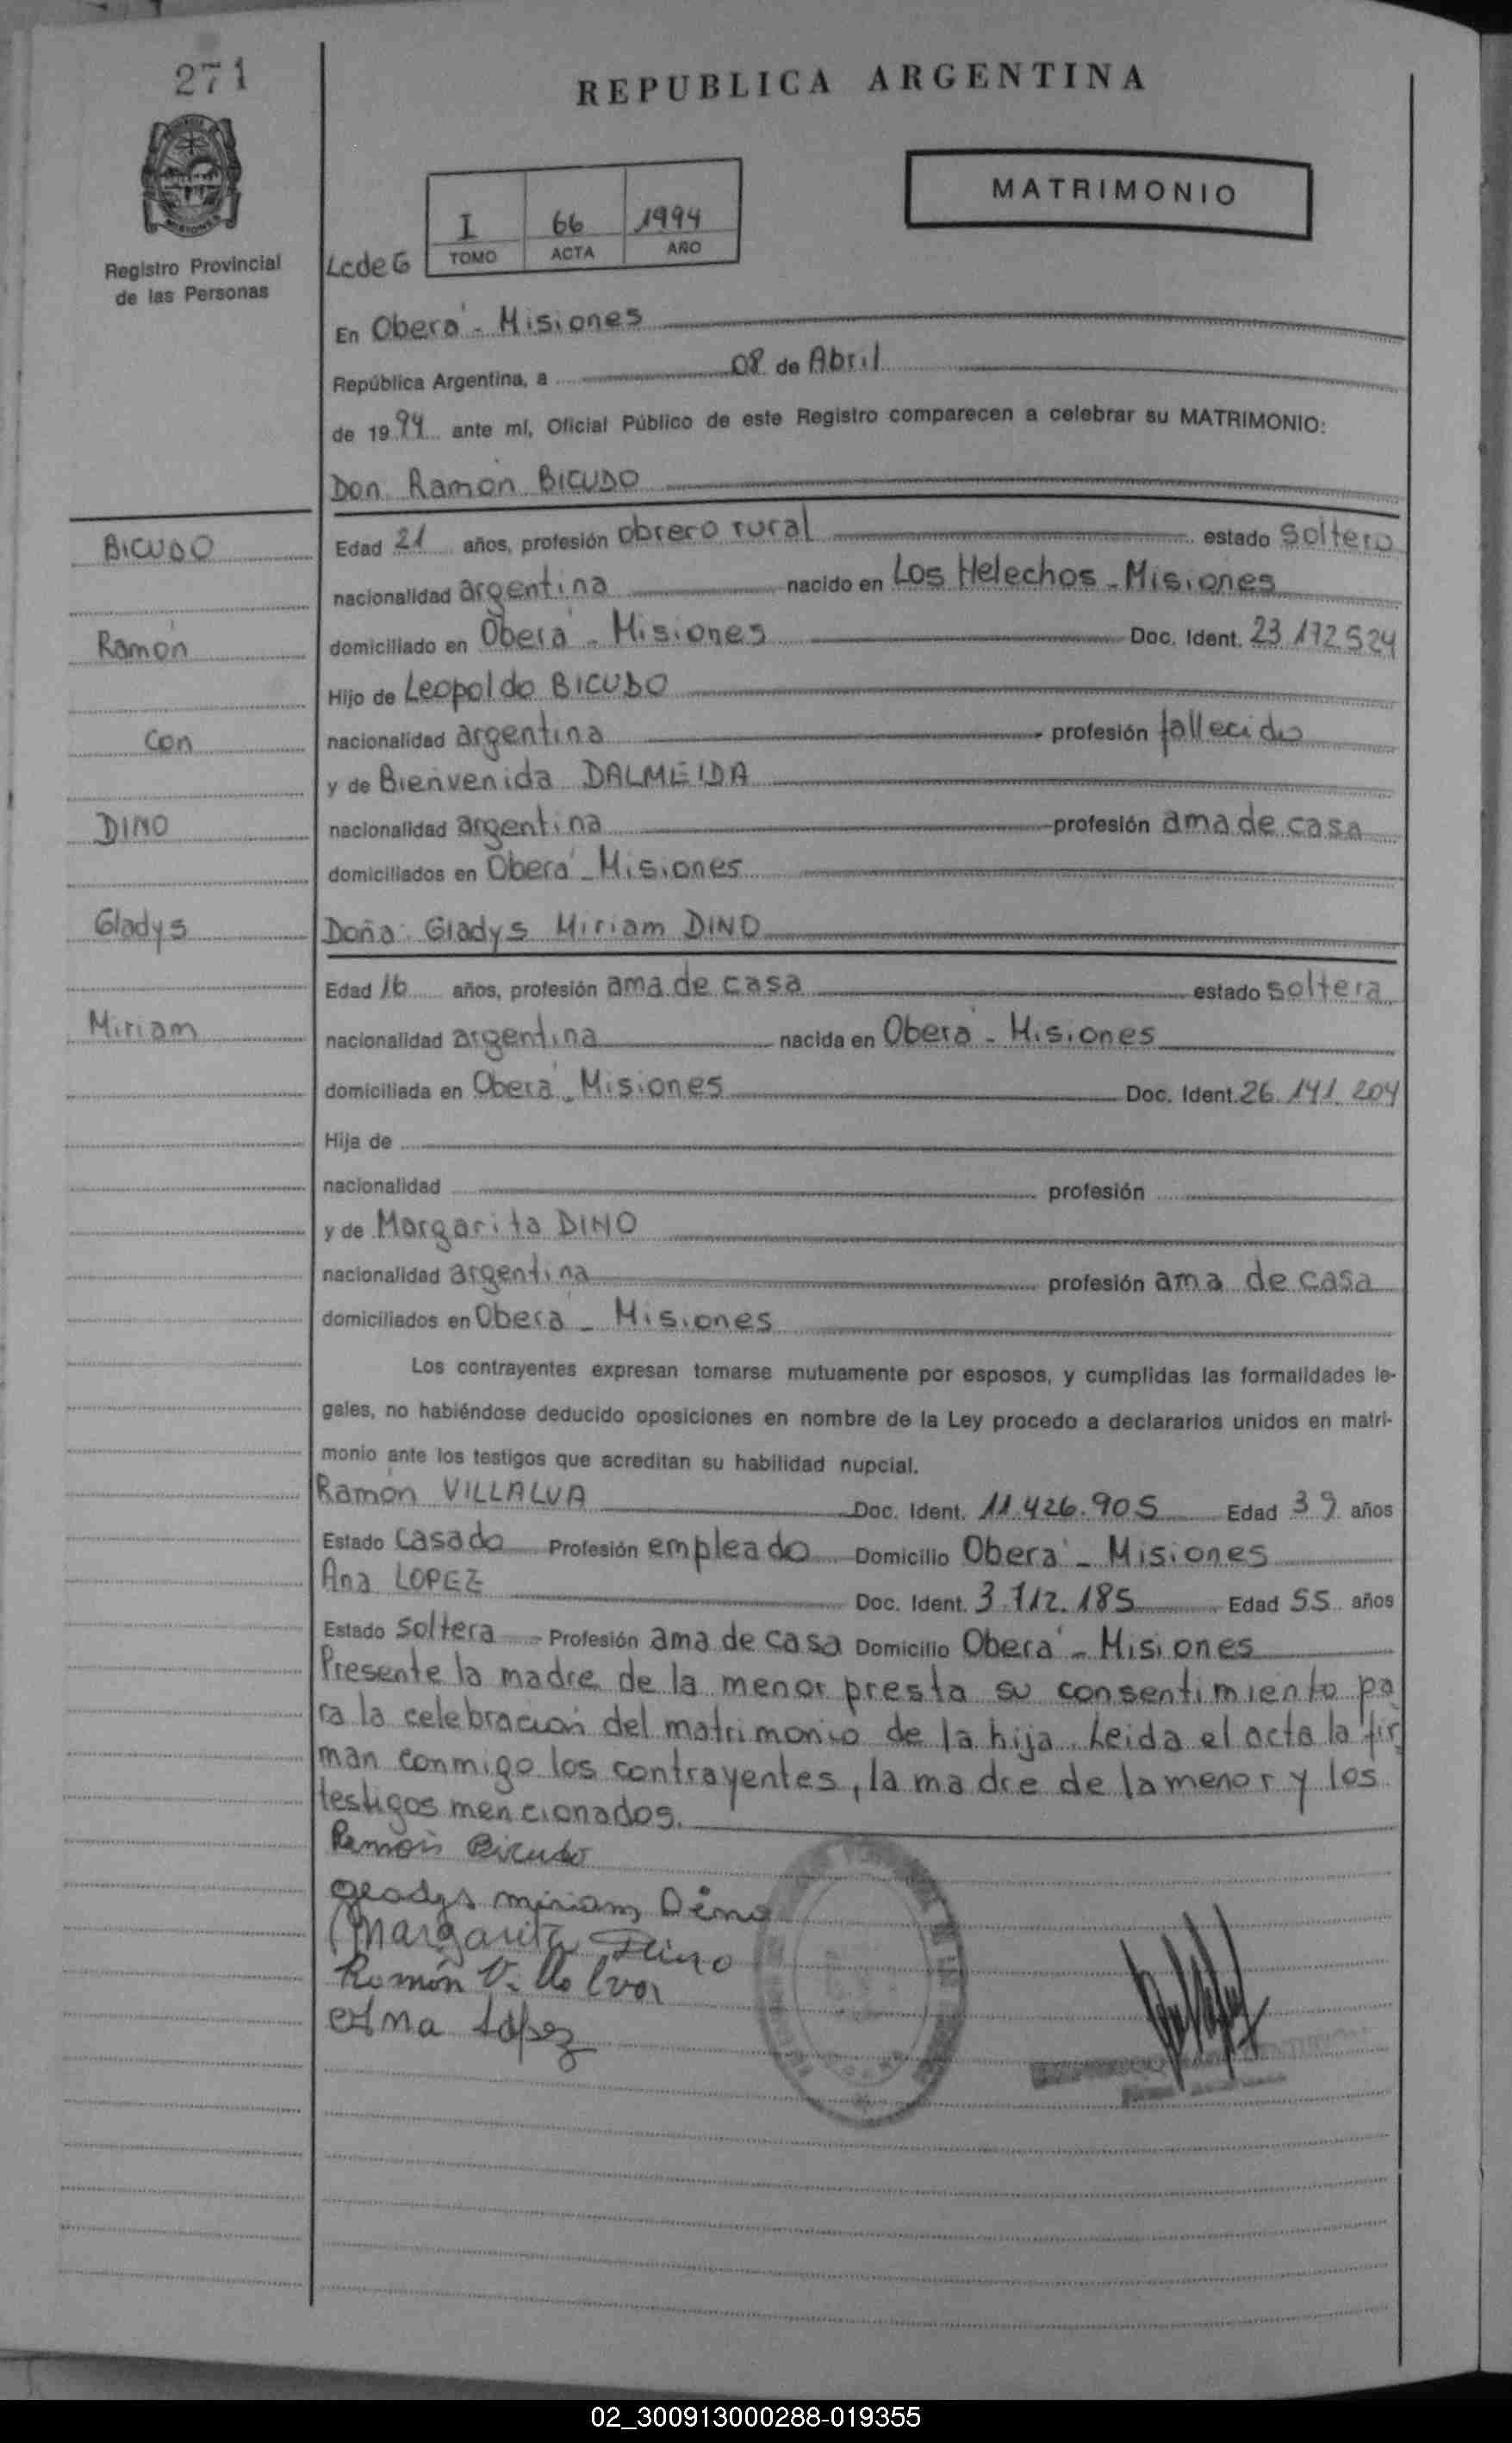 271
REPUBLICA ARGENTINA
MATRIMONIO
I 66 1994
TOMO ACTA AÑO
LcdeG
Registro Provincial
de las Personas
En Oberá - Misiones
República Argentina, a 08 de Abril
de 1994 ante mí, Oficial Público de este Registro comparecen a celebrar su MATRIMONIO:
Don Ramón BICUDO
BICUDO
Edad 21 años, profesión obrero rural estado soltero
nacionalidad argentina nacido en Los Helechos - Misiones
Ramón
domiciliado en Oberá - Misiones Doc. Ident. 23.172.524
Hijo de Leopoldo BICUDO
con
nacionalidad argentina profesión fallecido
y de Bienvenida DALMEIDA
DINO
nacionalidad argentina profesión ama de casa
domiciliados en Oberá - Misiones
Gladys
Doña Gladys Miriam DINO
Edad 16 años, profesión ama de casa estado soltera
Miriam
nacionalidad argentina nacida en Oberá - Misiones
domiciliada en Oberá - Misiones Doc. Ident. 26.141.204
Hija de
nacionalidad profesión
y de Margarita DINO
nacionalidad argentina profesión ama de casa
domiciliados en Oberá - Misiones
Los contrayentes expresan tomarse mutuamente por esposos, y cumplidas las formalidades le-
gales, no habiéndose deducido oposiciones en nombre de la Ley procedo a declararlos unidos en matri-
monio ante los testigos que acreditan su habilidad nupcial.
Ramón VILLALVA Doc. Ident. 11.426.905 Edad 39 años
Estado casado Profesión empleado Domicilio Oberá - Misiones
Ana LOPEZ Doc. Ident. 3.712.185 Edad 55 años
Estado soltera - Profesión ama de casa Domicilio Oberá - Misiones
Presente la madre de la menor presta su consentimiento pa
ra la celebración del matrimonio de la hija. Leida el acta la fir
man conmigo los contrayentes, la madre de la menor y los
testigos mencionados.
Ramón Bicudo
Gladys miriam Dino
Margarita Dino
Ramón Villalva
Ana López
02_300913000288-019355